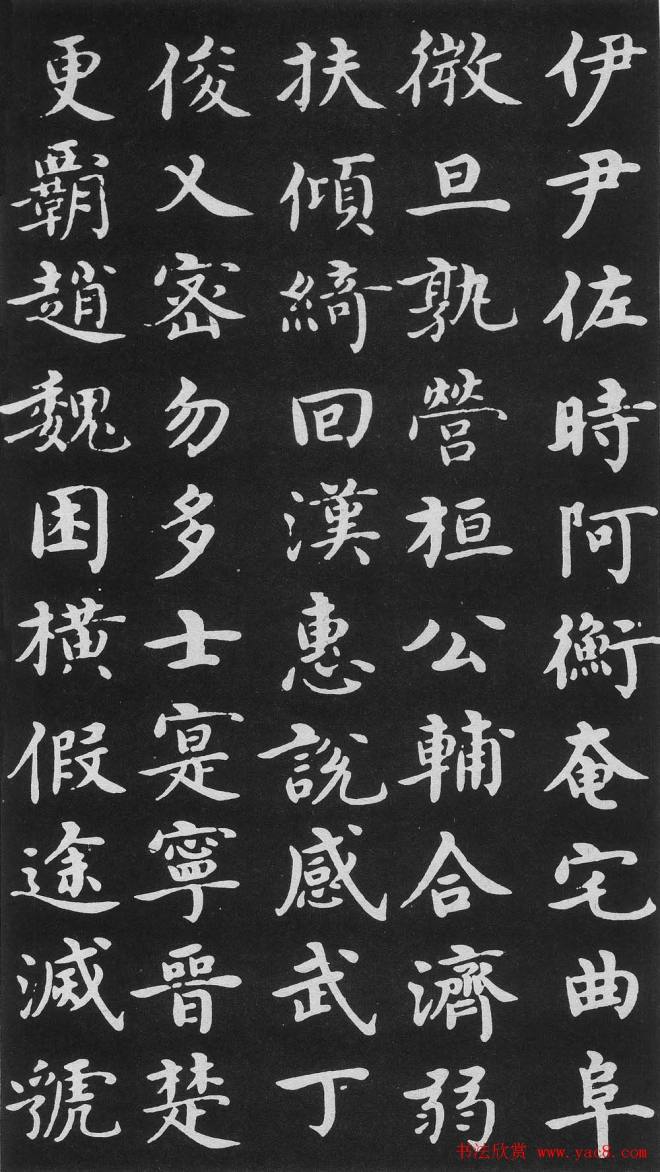 伊尹佐時阿衡奄宅曲阜
微旦孰營桓公輔合濟弱
扶傾綺回漢惠說感武丁
俊乂密勿多士寔寧晉楚
更覇趙魏困橫假途滅虢
书法欣赏 www.yac8.com